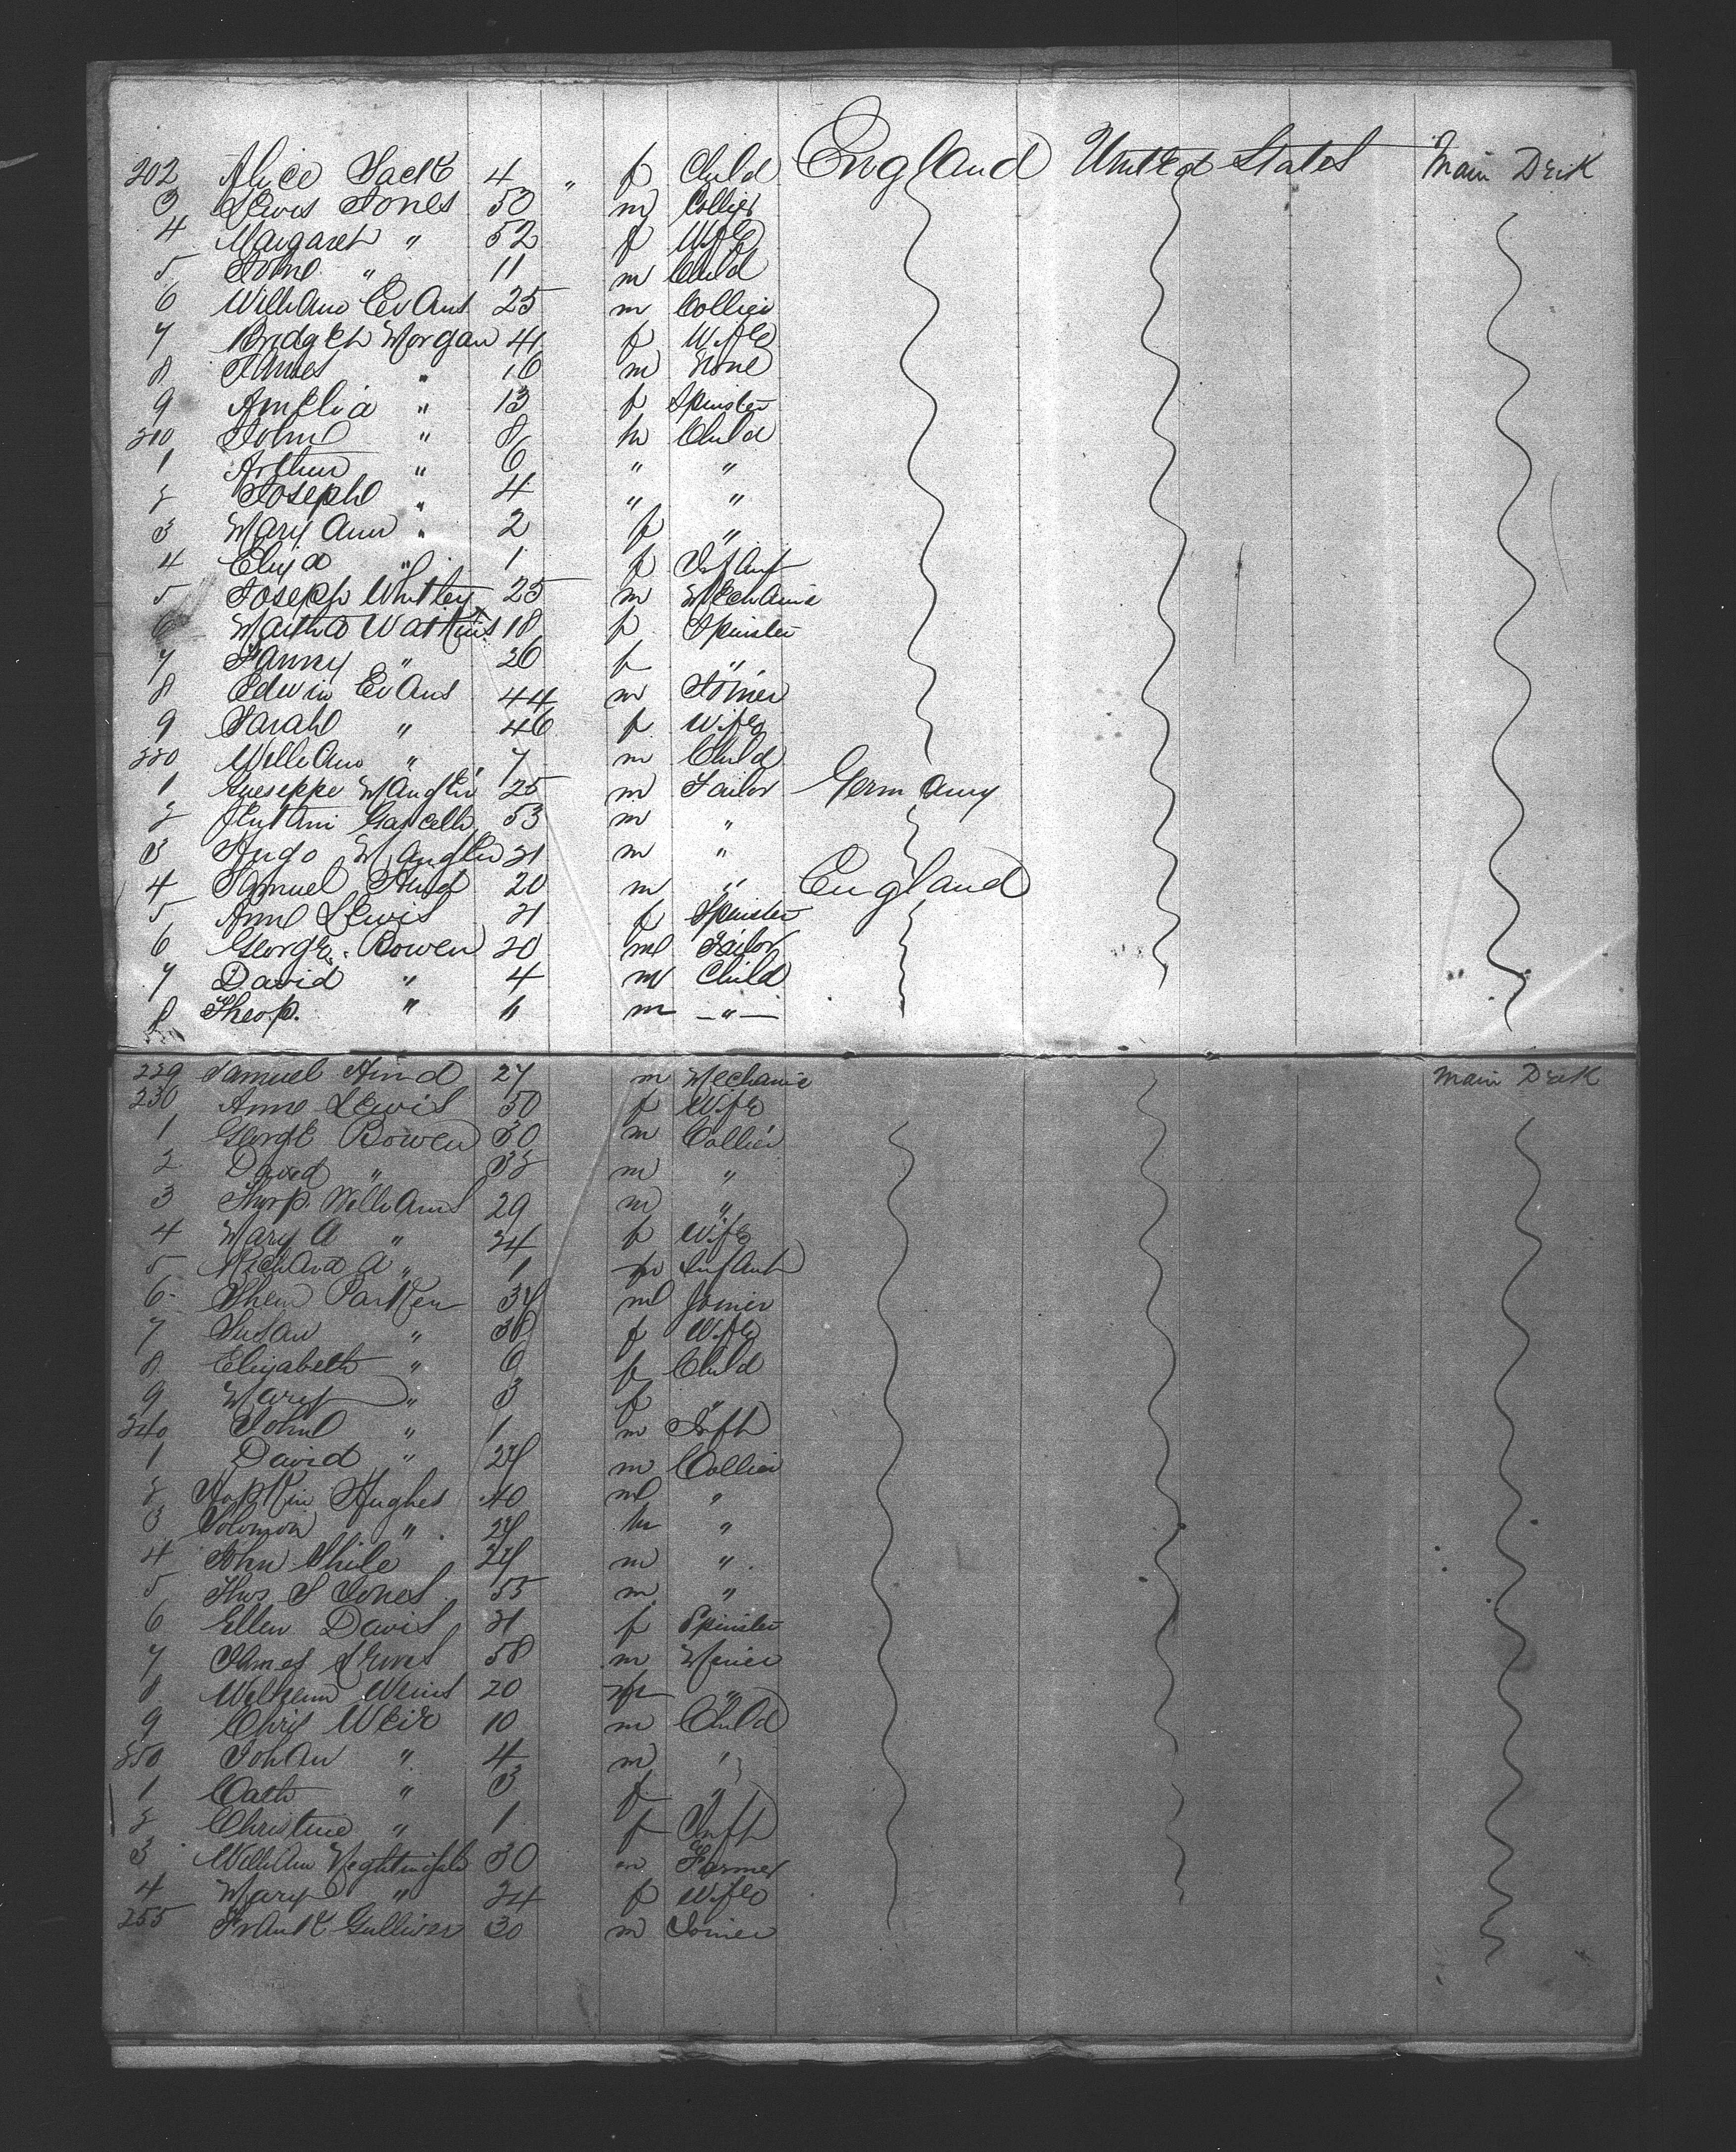 202 Alice Jack 4 " f Child England United States Main Deck
3 Lewis Jones 50 m Collier
4 Margaret " 52 f Wife
5 John " 11 m Child
6 William Evans 25 m Collier
7 Bridget Morgan 41 f Wife
8 James " 16 m None
9 Amelia " 13 f Spinster
210 John " 8 m Child
1 Arthur " 6 " "
2 Joseph " 4 " "
3 Mary Ann " 2 f "
4 Eliza " 1 f Infant
5 Joseph Whitley 25 m Mechanic
6 Martha Watkins 18 f Spinster
7 Fanny " 26 f "
8 Edwin Evans 44 m Joiner
9 Sarah " 46 f Wife
220 William " 7 m Child
1 Gueseppe 25 m Tailor Germany
2 53 m "
3 Hugo 21 m "
4 Samuel Hind 20 m " England
5 Ann Lewis 21 f Spinster
6 George Bowen 20 m Tailor
7 David " 4 m Child
8 Theop. " 11 m "
229 Samuel Hind 27 m Mechanic Main Deck
230 Ann Lewis 50 f Wife
1 George Bowen 30 m Collier
2 David " 32 m "
3 Theop. Williams 29 m "
4 Mary A " 24 f Wife
5 Richard A " 1 m Infant
6 Parker 34 m Joiner
7 Susan " f Wife
8 Elizabeth " 6 f Child
9 Mary " 3 f "
240 John " 1 m Inft
1 David " 24 m Collier
2 Hopkin Hughes 40 m "
3 Solomon " 24 m "
4 John 24 m "
5 Thos S Jones 55 m "
6 Ellen Davis 21 f Spinster
7 James Lewis 58 m Miner
8 20 "
9 Chris Weir 10 m Child
250 Johan " 4 m "
1 Cath " 3 f "
2 Christine " 1 f Inft
3 William Nightingale 30 m Farmer
4 Mary " 24 f Wife
255 Frank Gulliver 30 m Joiner